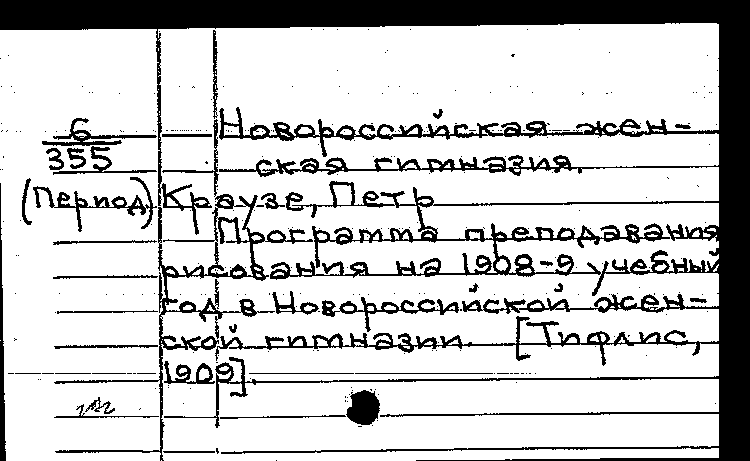 6
355
Новороссийская жен-
ская гимназия.
(Период) Краузе, Петр
Программа преподавания
рисования на 1908-9 учебный
год в Новороссийской жен-
ской гимназии. [Тифлис,
1909].